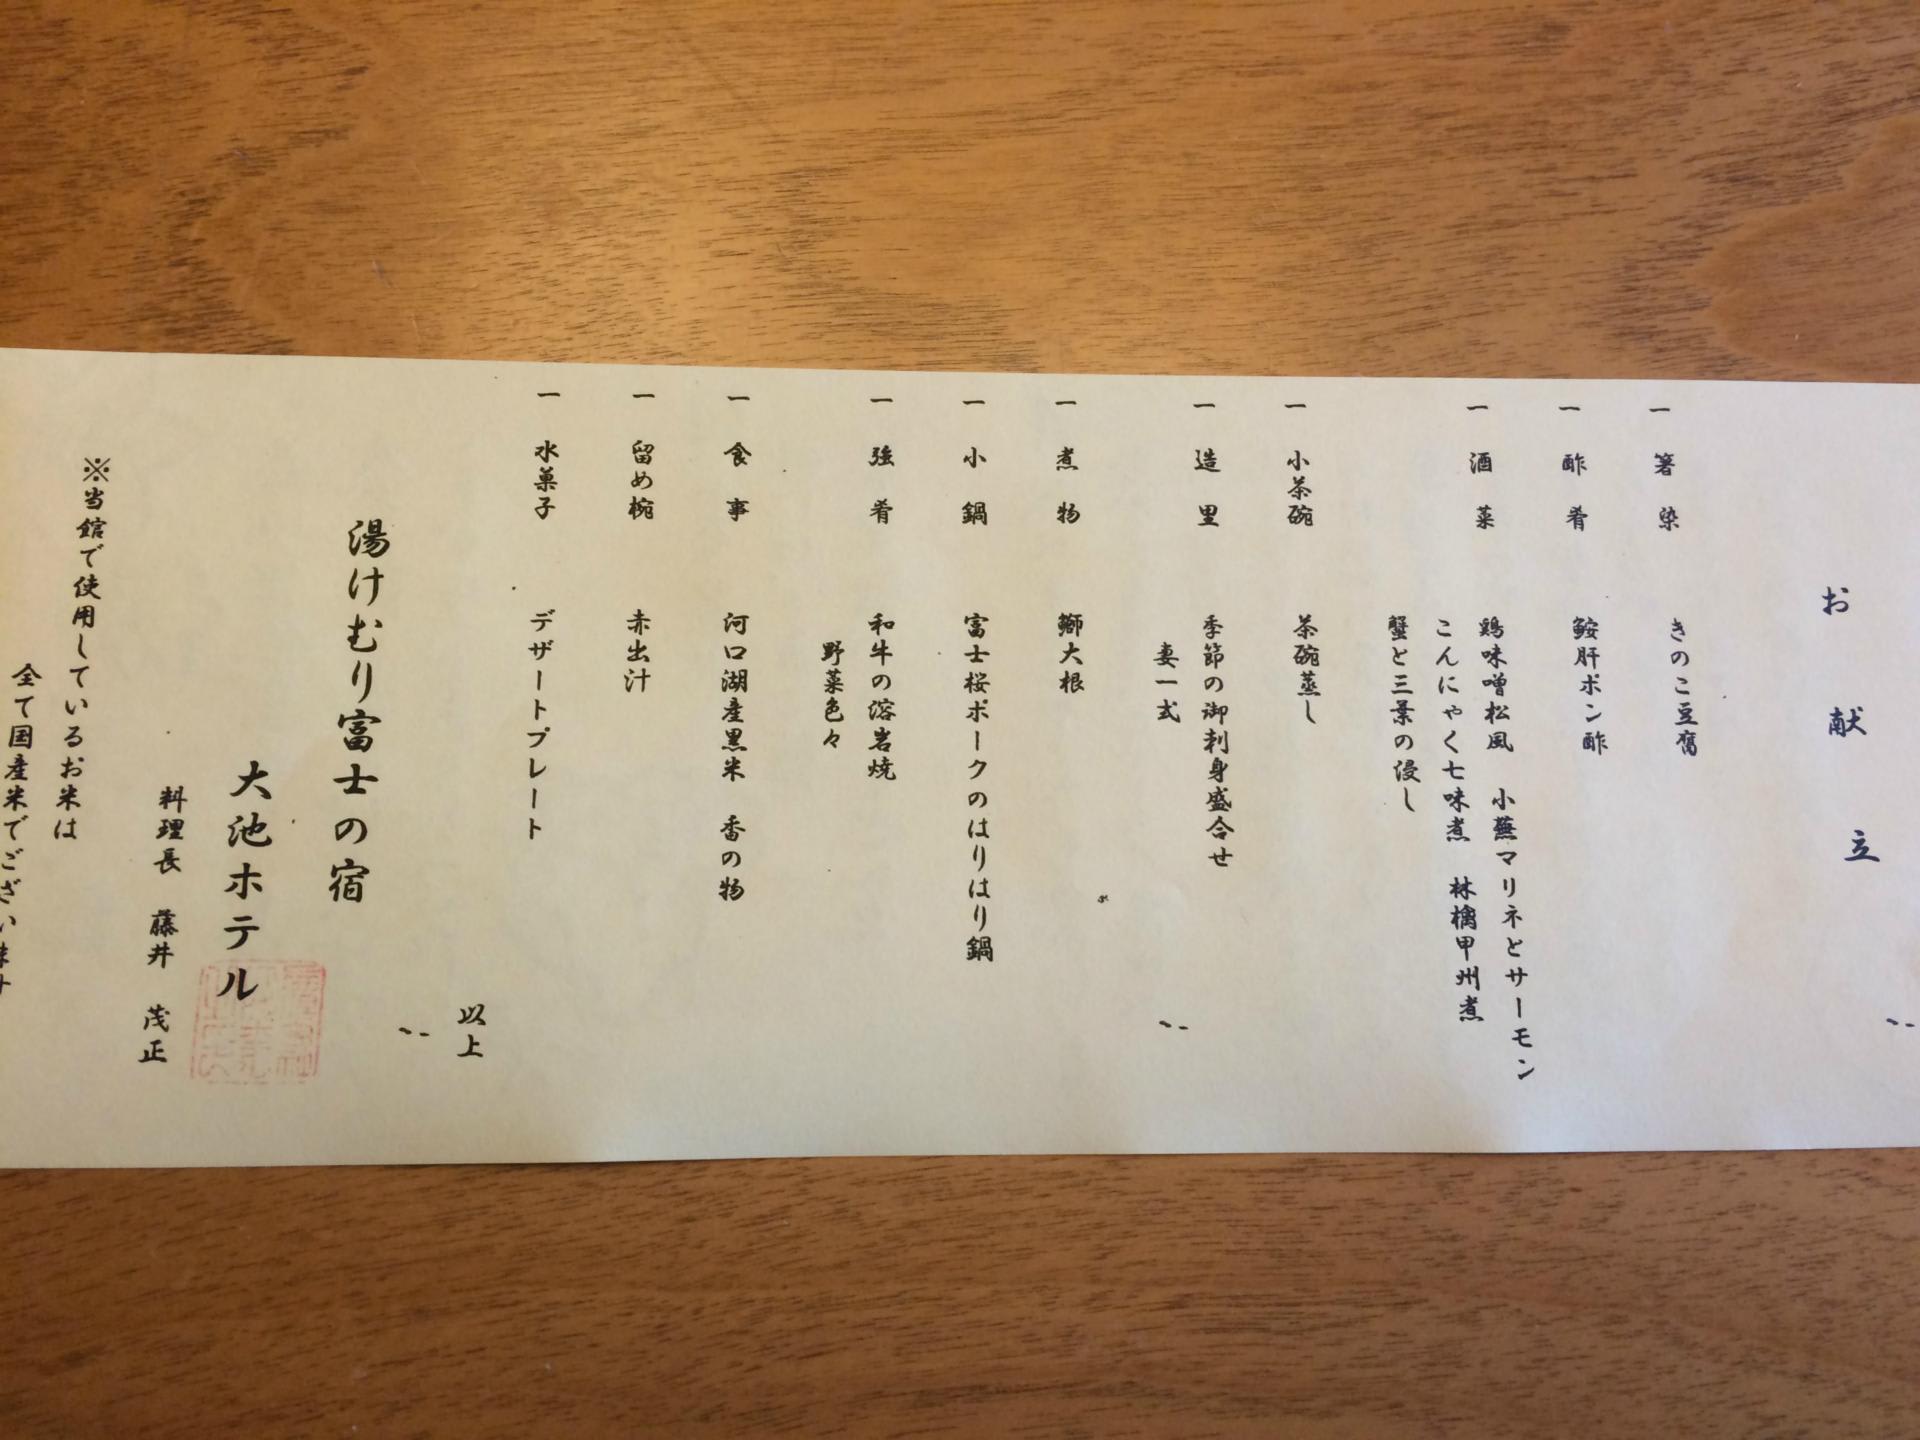 お献立
一 箸染 きのこ豆腐
一 酢肴 鮟肝ポン酢
一 酒菜 鶏味噌松風 小蕪マリネとサーモン
こんにゃく七味煮 林檎甲州煮
蟹と三葉の浸し
一 小茶碗 茶碗蒸し
一 造里 季節の御刺身盛合せ
妻一式
一 煮物 鰤大根
一 小鍋 富士桜ポークのはりはり鍋
一 強肴 和牛の溶岩焼
野菜色々
一 食事 河口湖産黒米 香の物
一 留め椀 赤出汁
一 水菓子 デザートプレート
以上
湯けむり富士の宿
大池ホテル
料理長 藤井 茂正
※当館で使用しているお米は
全て国産米でございます